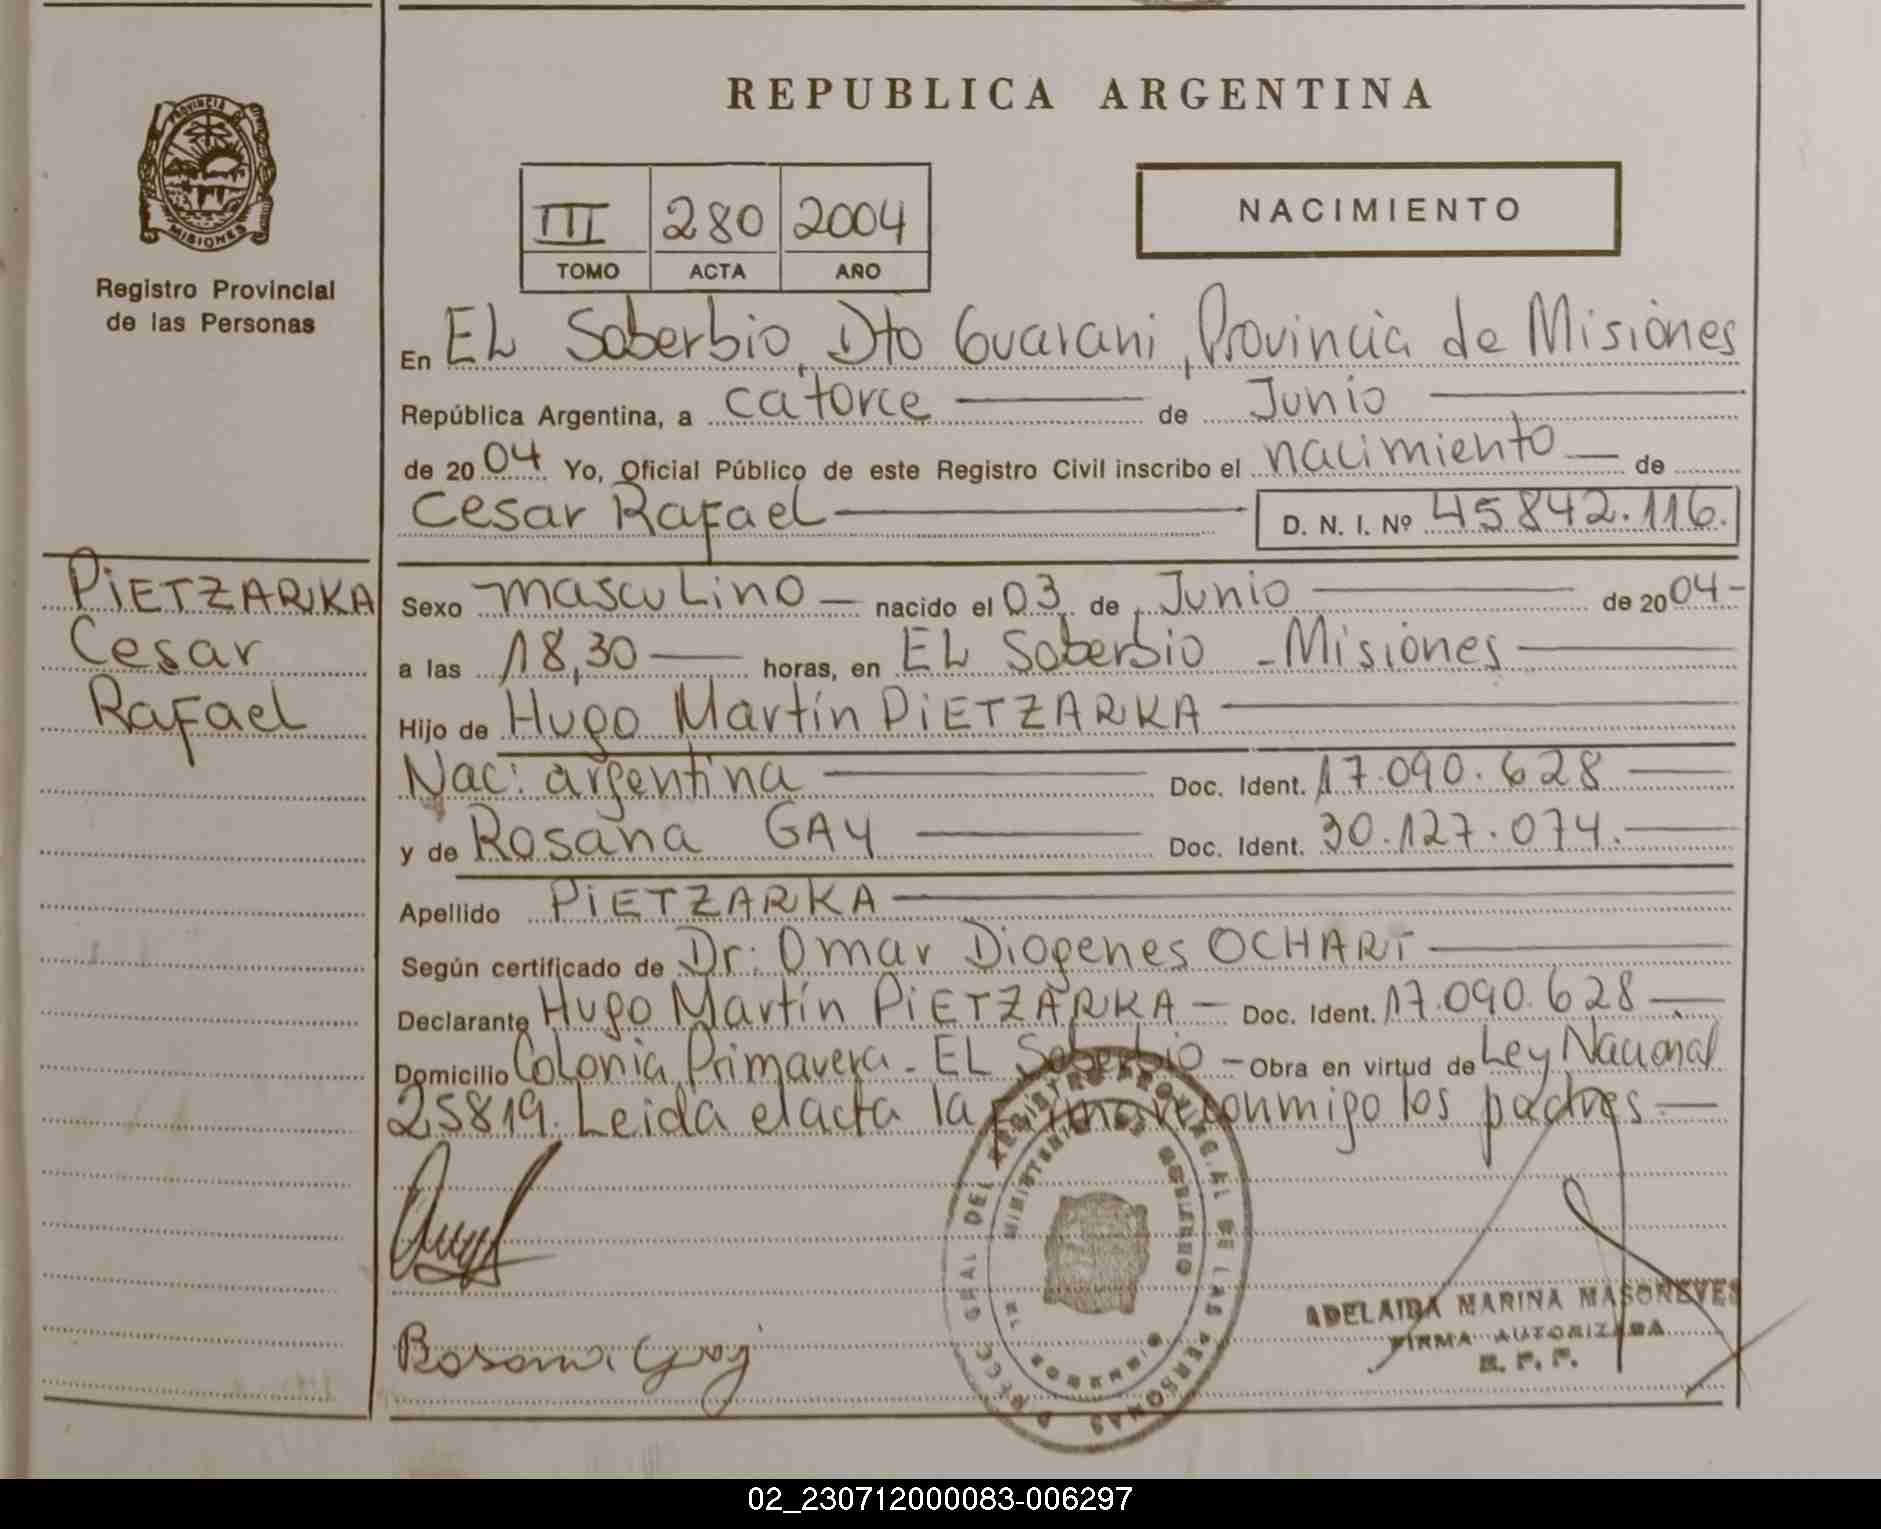 REPUBLICA ARGENTINA
PROVINCIA DE MISIONES
Registro Provincial
de las Personas
III 280 2004
TOMO ACTA AÑO
NACIMIENTO
En EL Soberbio, Dto Guarani, Provincia de Misiones
República Argentina, a catorce de Junio
de 2004 Yo, Oficial Público de este Registro Civil inscribo el nacimiento de
Cesar Rafael D. N. I. Nº 45842.116.
PiETZARKA
Cesar
Rafael
Sexo masculino nacido el 03 de Junio de 2004
a las 18,30 horas, en EL Soberbio - Misiones
Hijo de Hugo Martín PiETZARKA
Nac: argentina Doc. Ident. 17.090.628
y de Rosana GAY Doc. Ident. 30.127.074.
Apellido PiETZARKA
Según certificado de Dr: Omar Diogenes OCHART
Declarante Hugo Martín PiETZARKA Doc. Ident. 17.090.628
Domicilio Colonia Primavera - EL Soberbio - Obra en virtud de Ley Nacional
25819. Leida el acta la firman conmigo los padres
Rosana Gay
DIRECC GRAL DEL REGISTRO PROVINCIAL DE LAS PERSONAS
MINISTERIO DE GOBIERNO
ADELAIDA MARINA MASONEVES
FIRMA AUTORIZADA
R. P. P.
02_230712000083-006297